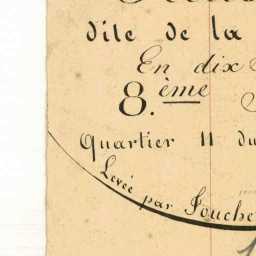 dite de la
En dix
8.ème
Quartier 11 du
Levée par Fouche